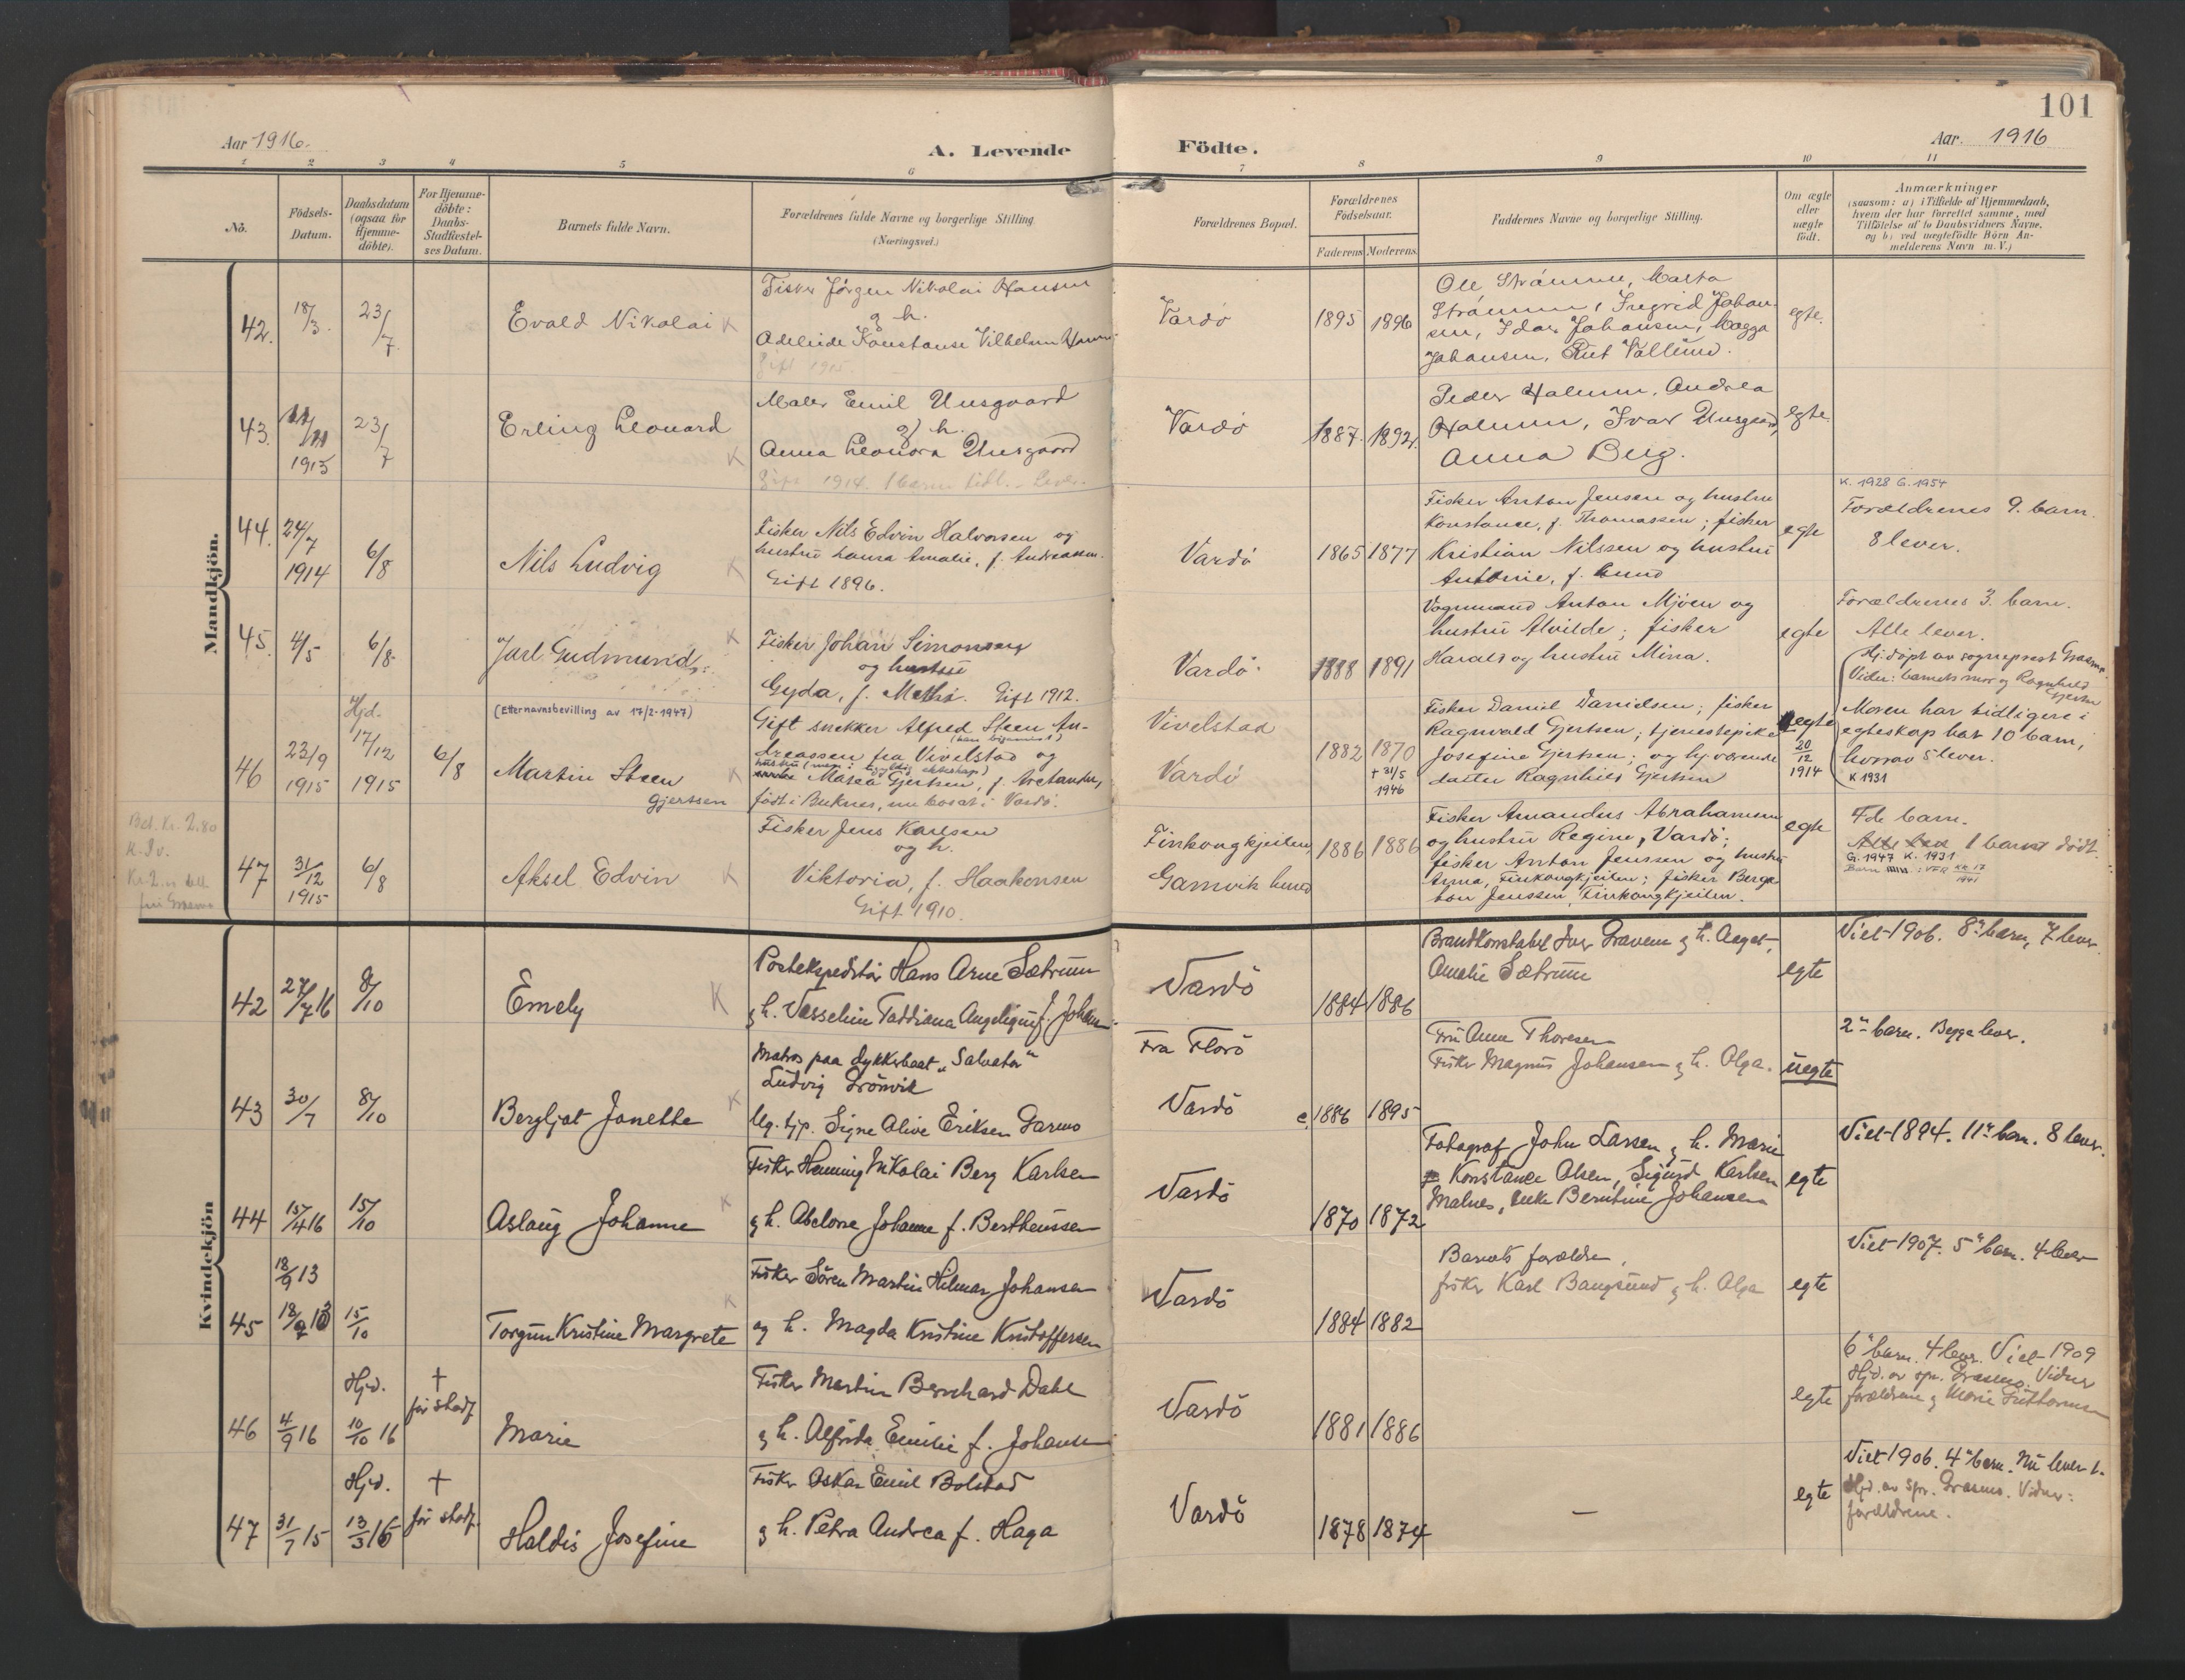 101
Aar 1916.
A. Levende
Födte.
Aar. 1916
1 2 3 4 5 6 7 8 9 10 11
No.
Födsels-
Datum.
Daabsdatum
(ogsaa for
Hjemme-
döbte).
For Hjemme-
döbte:
Daabs-
Stadfæstel-
ses Datum.
Barnets fulde Navn.
Forældrenes fulde Navne og borgerlige Stilling
(Næringsvei.)
Forældrenes Bopæl.
Forældrenes
Födselsaar.
Faderens Moderens.
Faddernes Navne og borgerlig Stilling.
Om ægte
eller
uægte
födt.
Anmærkninger
(saasom: a) i Tilfælde af Hjemmedaab,
hvem der har forrettet samme, med
Tilföielse af to Daabsvidners Navne.
og b) ved uægtefödte Börn An-
melderens Navn m. V.)
Mandkjön.
42. 18/3. 23/7.
Evald Nikolai K
Fisker Jörgen Nikolai Hansen
g h.
Adeleide Konstanse Vilhelm
Gift 1915.
Vardö
1895 1896
Ole Strömme, Marta
Strömme, Ingrid Johan-
sen, Idar Johansen, Magga
Johansen, Rut Vallund.
egte.
43. 11/11 1915 23/7
Erling Leonard K
Maler Emil Unsgaard
g h.
Anna Leonora Unsgaard
Gift 1914. 1 barn tidl. Lever.
Vardö
1887. 1892.
Peder Halmen, Andrea
Halmen, Ivar Unsgaard,
Anna Berg.
egte.
44. 24/7 1914 6/8
Nils Ludvig K
Fisker Nils Edvin Halvorsen og
hustru Laura Amalie, f. Andreassen.
Gift 1896.
Vardö
1865 1877
Fisker Anton Jensen og hustru
Konstance, f. Thomassen; fisker
Kristian Nilssen og hustru
Antonie, f. Lund
egte
K. 1928 G. 1954
Forældrenes 9. barn.
8 lever.
45. 4/5 6/8
Jarl Gudmund K
Fisker Johan Simonsen
og hustru
Gyda, f. Mathis. Gift 1912.
Vardö
1888 1891
Vognmand Anton Mjöen og
hustru Alvilde; fisker
Harald og hustru Mina.
egte
Forældrenes 3. barn.
Alle lever.
46 23/9 1915 Hjd. 17/12 1915 6/8
(Etternavnsbevilling av 17/2-1947)
Martin Steen K
Gjertsen
Gift snekker Alfred Steen An-
dreassen fra Vivelstad og
Marea Gjertsen, f. Aretander,
födt i Buknes, nu bosat i Vardö.
Vivelstad
Vardö
1882 1870
+ 31/5
1946
Fisker Daniel Danielsen; fisker
Ragnvald Gjertsen; tjenestepike
Josefine Gjertsen; og hjemværende
datter Ragnhild Gjertsen
uegte
20/12
1914
Hj. döpt av sogneprest Grasmo.
Vidner: barnets mor og Ragnhild
Gjertsen
Moren har tidligere i
egteskap hat 10 barn,
hvorav 5 lever.
K 1931
Bet. Kr. 2.80
47 31/12 1915 6/8
Aksel Edvin K
Fisker Jens Karlsen
og h.
Viktoria, f. Haakonsen
Gift 1910.
Finkongkjeilen,
Gamvik herred
1886 1886
Fisker Amandus Abrahamsen
og hustru Regine, Vardö;
fisker Anton Jenssen og hustru
Anna, Finkongkjeilen; fisker Berga
ton Jenssen, Finkongkjeilen.
egte
4de barn.
1 barn dödt.
G. 1947 K. 1931
Kvindekjön
42 27/7 16 8/10
Emely K
Postekspeditör Hans Arne Sætrum
g h. Vasselin Taddiana Angelique f. Johan
Vardö
1884 1886
Brandkonstabel Iver Gravem g h. Aagot,
Amalie Sætrum
egte
Viet 1906. 8de barn, 7 lever
43 30/7 8/10
Bergljot Janette K
Matros paa dykkerbaat „Salvator"
Ludvig Grönvik
Ug. tjp. Signe Alive Eriksen Garmo
Fra Florö
Vardö
1886 1895
Fru Anna Thoresen
Fisker Magnus Johansen g h. Olga.
uegte
2det barn. Begge lever.
44 15/4 16 15/10
Aslaug Johanne K
Fisker Henning Nikolai Berg Karlsen
g h. Abelone Johanne f. Bertheussen
Vardö
1870 1872
Fotograf John Larsen g h. Marie
Konstance Olsen, Sigurd Karlsen
Malnes, enke Berntine Johansen
egte
Viet 1894. 11te barn. 8 lever.
18/9 13
45 18/9 13 15/10
Torgun Kristine Margrete K
Fisker Sören Martin Hilmar Johansen
og h. Magda Kristine Kristoffersen
Vardö
1884 1882
Barnets forældre,
fisker Karl Bangsund g h. Olga
egte
Viet 1907. 5te barn. 4 lever
46 4/9 16 Hjd. 10/10 16 † för stadf.
Marie
Fisker Martin Bernhard Dahl
g h. Alfrida Emilie f. Johansen
Vardö
1881 1886
egte
6te barn. 4 lever. Viet 1909
Hjd. av spr. Grasmo. Vidner
forældrene g Marie Guttormsen
47 31/7 15 Hjd. 13/3 16 † för stadf.
Haldis Josefine
Fisker Oskar Emil Bolstad
g h. Petra Andrea f. Haga
Vardö
1878 1874
—
egte
Viet 1906. 4de barn. Nu lever 1.
Hjd. av spr. Grasmo. Vidner:
forældrene.